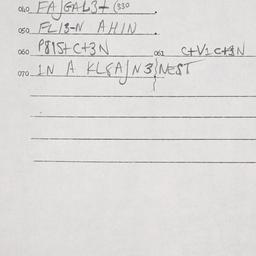 040 FAJGAL3+ (330
050 FL13-N AHIN.
060 P815+C+3N 061 C+V1C+3N
070 1N A KL8AJN3}NEST